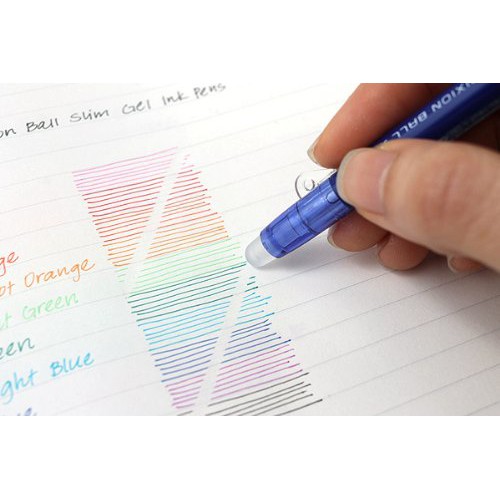 on Ball Slim Gel Ink Pens
IXION BALL
ge
ot Orange
t Green
een
ght Blue
ue